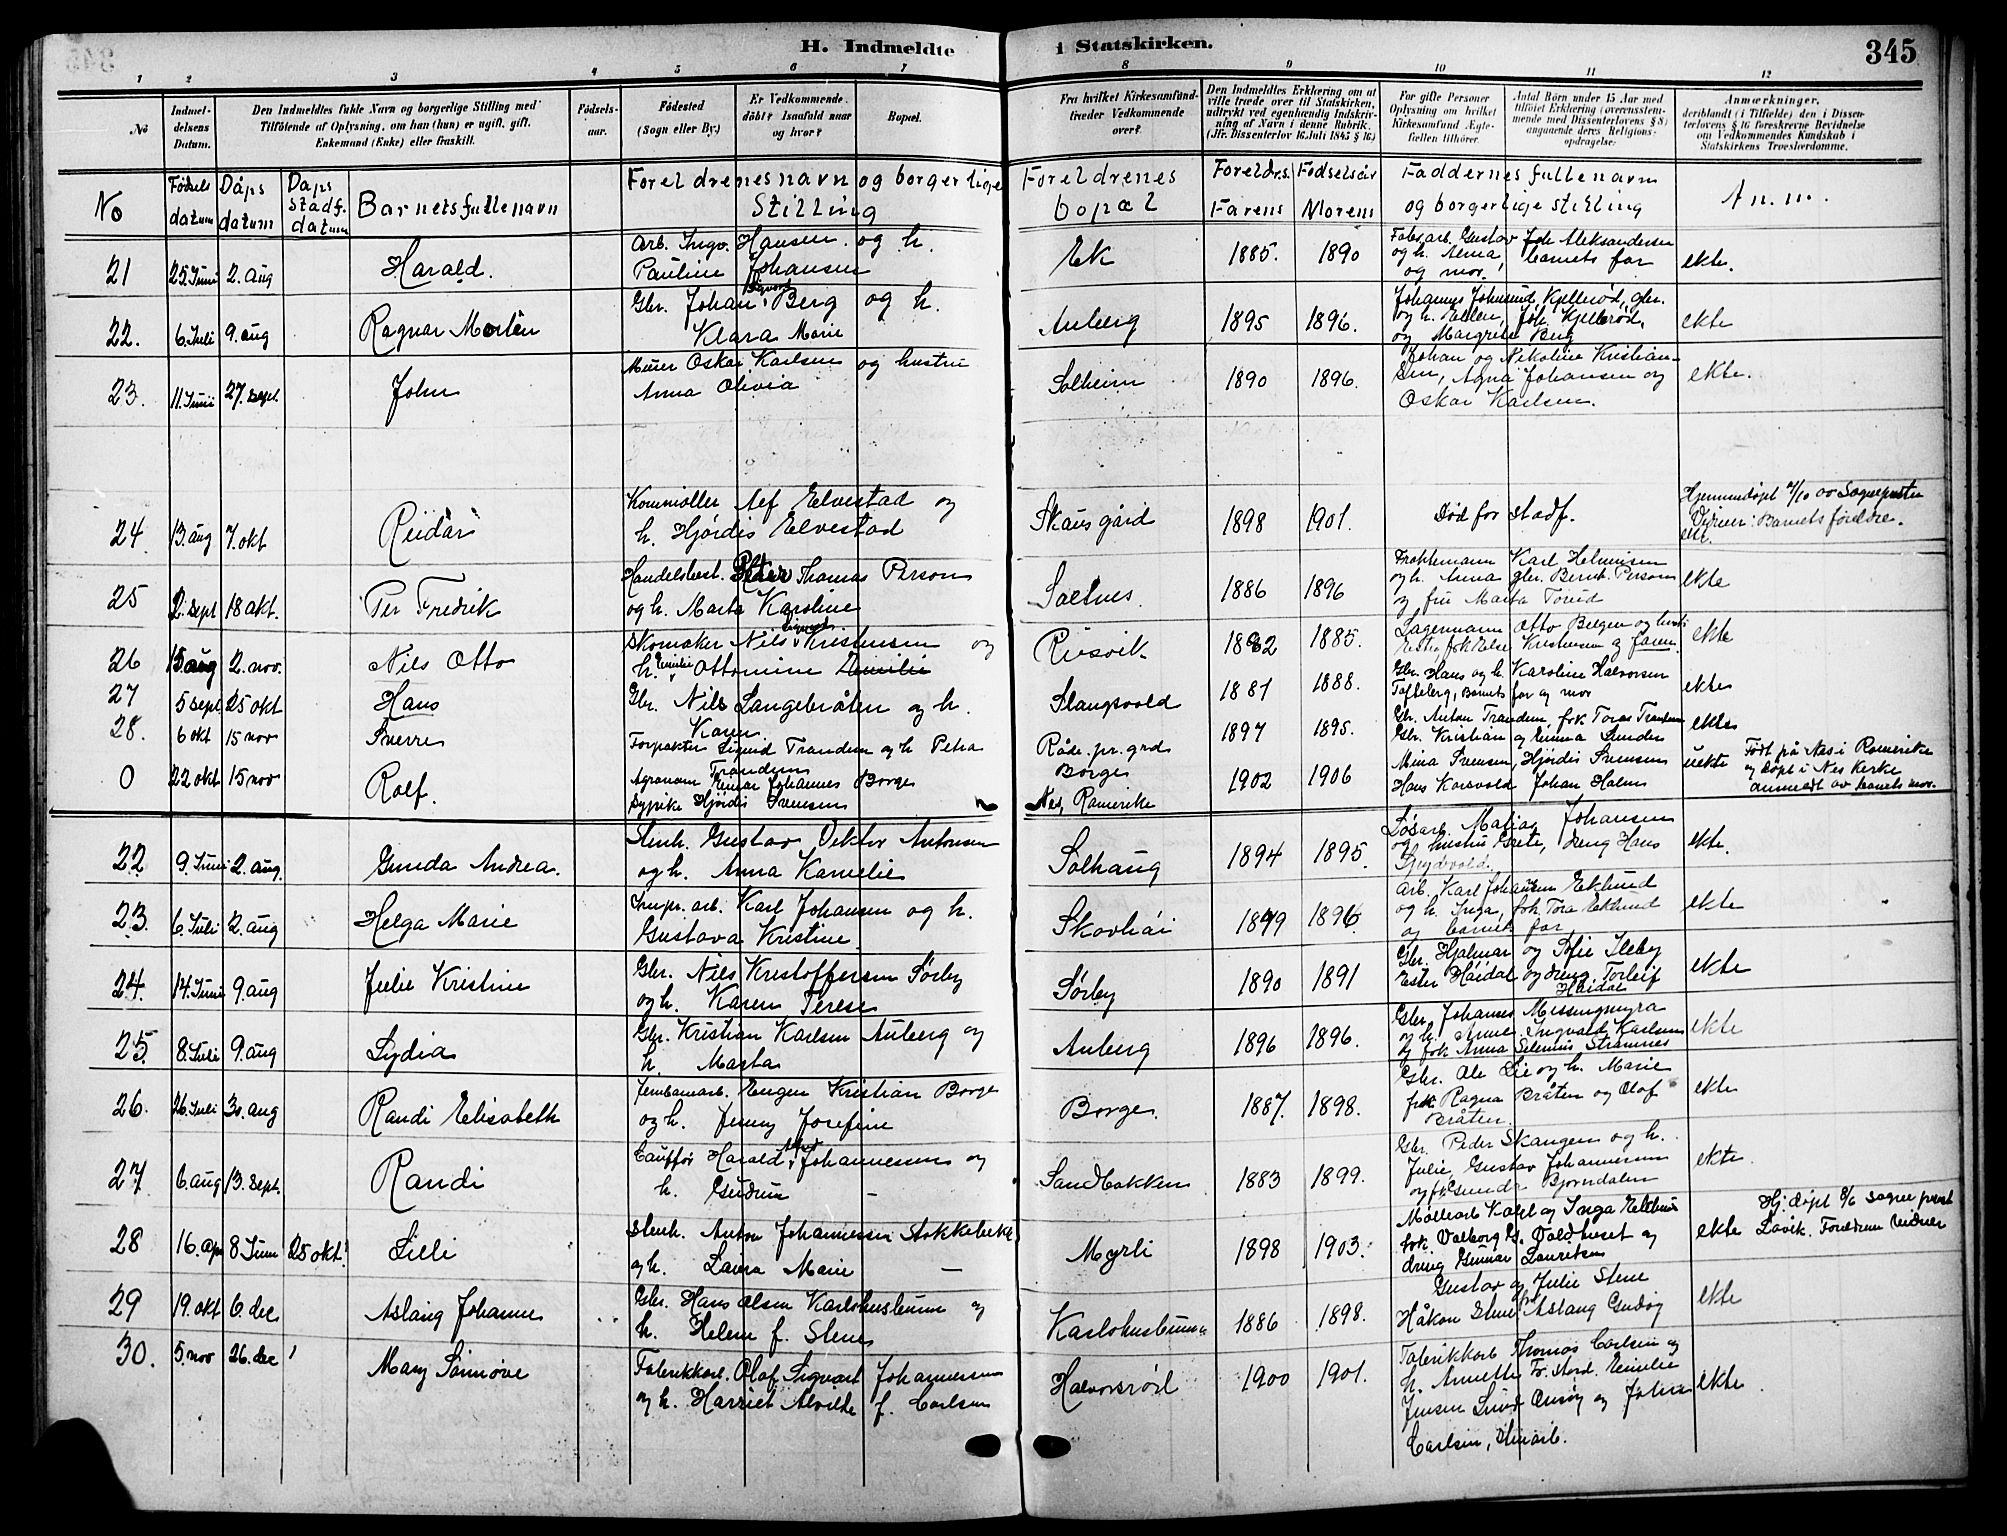 H. Indmeldte i Statskirken. 345
1 2 3 4 5 6 7 8 9 10 11 12
No
Indmeldelsens Datum.
Den Indmeldtes fulde Navn og borgerlige Stilling med Tilføiende af Oplysning, om han (hun) er ugift, gift, Enkemand (Enke) eller fraskilt.
Fødselsaar.
Fødested (Sogn eller By.)
Er Vedkommende døbt? Isaafald naar og hvor?
Bopæl.
Fra hvilket Kirkesamfund træder Vedkommende over?
Den Indmeldtes Erklæring om at ville træde over til Statskirken, udtrykt ved egenhændig Indskrivning af Navn i denne Rubrik. (Jfr. Dissenterlov 16 Juli 1845 § 16)
For gifte Personer Oplysning om hvilket Kirkesamfund Ægtefællen tilhører.
Antal Børn under 15 Aar med tilføiet Erklæring (overensstemmende med Dissenterlovens § 8) angaaende deres Religionsopdragelse:
Anmærkninger, deriblandt (i Tilfælde) den i Dissenterlovens § 16 foreskrevne Bevidnelse om Vedkommendes Kundskab i Statskirkens Troeslærdomme.
No
Fødsels datum
Dåps datum
Daps stadf. datum
Barnets fulle navn
Foreldrenes navn og borgerlige Stilling
Foreldrenes bopæl
Foreldrs. Fødselsår
Farens Morens
Faddernes fulle navn og borgerlige stilling
Anm.
21 25. Juni 2. Aug Harald. Arb. Ingv. Hansen og h. Pauline Johansen Ek 1885. 1890 Fabr.arb. Gustav Joh. Aleksandersen og h. Alma, barnets far og mor. ekte.
22. 6. Juli 9. aug Ragnar Morten Gbr. Johan Sigvard Berg og h. Klara Marie Anberg 1895 1896. Johannes Johansens Kjellerød, gbr. og h. Ellen, Joh. Kjellerød, og Margrete Berg ekte
23. 11. Juni 27. sept. John Murer Oskar Karlsen og hustru Anna Olivia Solheim 1890 1896. Johan og Nikoline Kristiansen, Agna Johansen og Oskar Karlsen. ekte.
24. 13. aug 7. okt Reidar Kornmøller Alf Elvestad og h. Hjørdis Elvestad Skausgård 1898 1901. Død for stadf. Hjemmedøpt av Sognepresten Vidner: Barnets foreldre.
25 2. sept 18 okt. Per Fredrik Handelsbest. Peter Thomas Person og h. Marta Karoline Saltnes. 1886 1896 Karl Helmersen og h. Anna gbr. Bernt Person og fru Marta Torud ekte
26 15 aug 2. nov. Nils Otto Skomaker Nils Sigvard Kristensen og h. Emilie Ottomine Riisvik 1882 1885. Lagermann Otto Belgen og Kristensen og faren. ekte
27 5 sept 25 okt Hans Gbr. Nils Langebråten og h. Karen Slangsvold 1881 1888. Gbr. Hans og h. Karoline Halvorsen Tofteberg, Barnets far og mor ekte
28. 6 okt 15 nov Sverre Forpakter Sigurd Trandem og h Petra Trandem Råde pr.grd 1897 1895. Gbr. Anton Trandem, frk Tora Trandem Gbr. Kristian og Emma Lunder ekte
0 22 okt 15 nov Rolf. Agronom Einar Johannes Borge Sypike Hjørdis Svensen Borge Nes, Romerike 1902 1906 Mina Svensen, Hjørdis Svensen Hans Karsvold Johan Holm uekte Født på Nes i Romerike og døpt i Nes Kirke anmeldt av barnets mor.
22 9. Juni 2. aug. Gunda Andrea. Stenh. Gustav Viktor Antonsen og h. Anna Kamelie Solhaug 1894 1895. Løsarb. Matias Johansen og hustru Grete, Dreng Hans Spydevold. ekte.
23. 6. Juli 2. aug Helga Marie Impr. arb. Karl Johansen og h. Gustava Kristine. Skovhøi 1899 1896 Arb. Karl Johansen Eklund og h. Inga, frk Tora Eklund og barnets far ekte
24. 14. Juni 9. aug Julie Kristine Gbr. Nils Kristoffersen Sørby og h. Karen Terese Sørby 1890 1891 Gbr. Hjalmar og Sofie Ileby Ester Haidal og dreng Torleif Haidal ekte
25. 8. Juli 9. aug Lydia Gbr. Kristian Karlsen Anberg og h. Marta Anberg 1896 1896. Gbr. Johannes Missingmyra og h. Anne. Ingvald Karlsen og frk Anna Selenius Strømnes ekte
26. 26. Juli 30. aug Randi Elisabeth Jernbanearb. Eugen Kristian Borge og h. Jenny Josefine Borge. 1887. 1898. Gbr. Ole Lie og h. Marie frk Ragna Bråten og Olaf Bråten. ekte
27. 6. aug 13. sept. Randi Cauffør Harald Johannessen og h. Gudrun Sandbakken 1883 1899. Gbr. Peder Skangen og h. Julie, Gustav Johannessen og frk Gunda Bjørndalen ekte.
28 16. apr 8 Juni 25 okt. Lilli Stenh. Anton Johannessen Stokkebekk og h. Laura Marie Myrli 1898 1903. Møllearb Karl og Inga frk. Valborg G. Voldhuset og dreng Gunnar Lauritsen ekte Hj. døpt 8/6 sogneprest Løvik. Foreldrene vidner
29 19. okt 6. dec Aslaug Johanne Gbr. Hans Olsen Karlshusbunn og h. Helene f. Stene Karlshusbunn 1886 1898. Gustav og Julie Stene Håkon Stene, Aslaug Gudøy ekte
30. 5. nov 26. dec Mary Sinnøve Fabrikkarb. Olaf Sigvart Johannessen og h. Harriet Alvilde f. Carlsen Halvorsrød 1900 1901. Fabrikkarb Thomas Carlsen og h. Annette Fr. Stord. Emelie Jensen Lund Onsøy og Johan Carlsen, stenarb. ekte